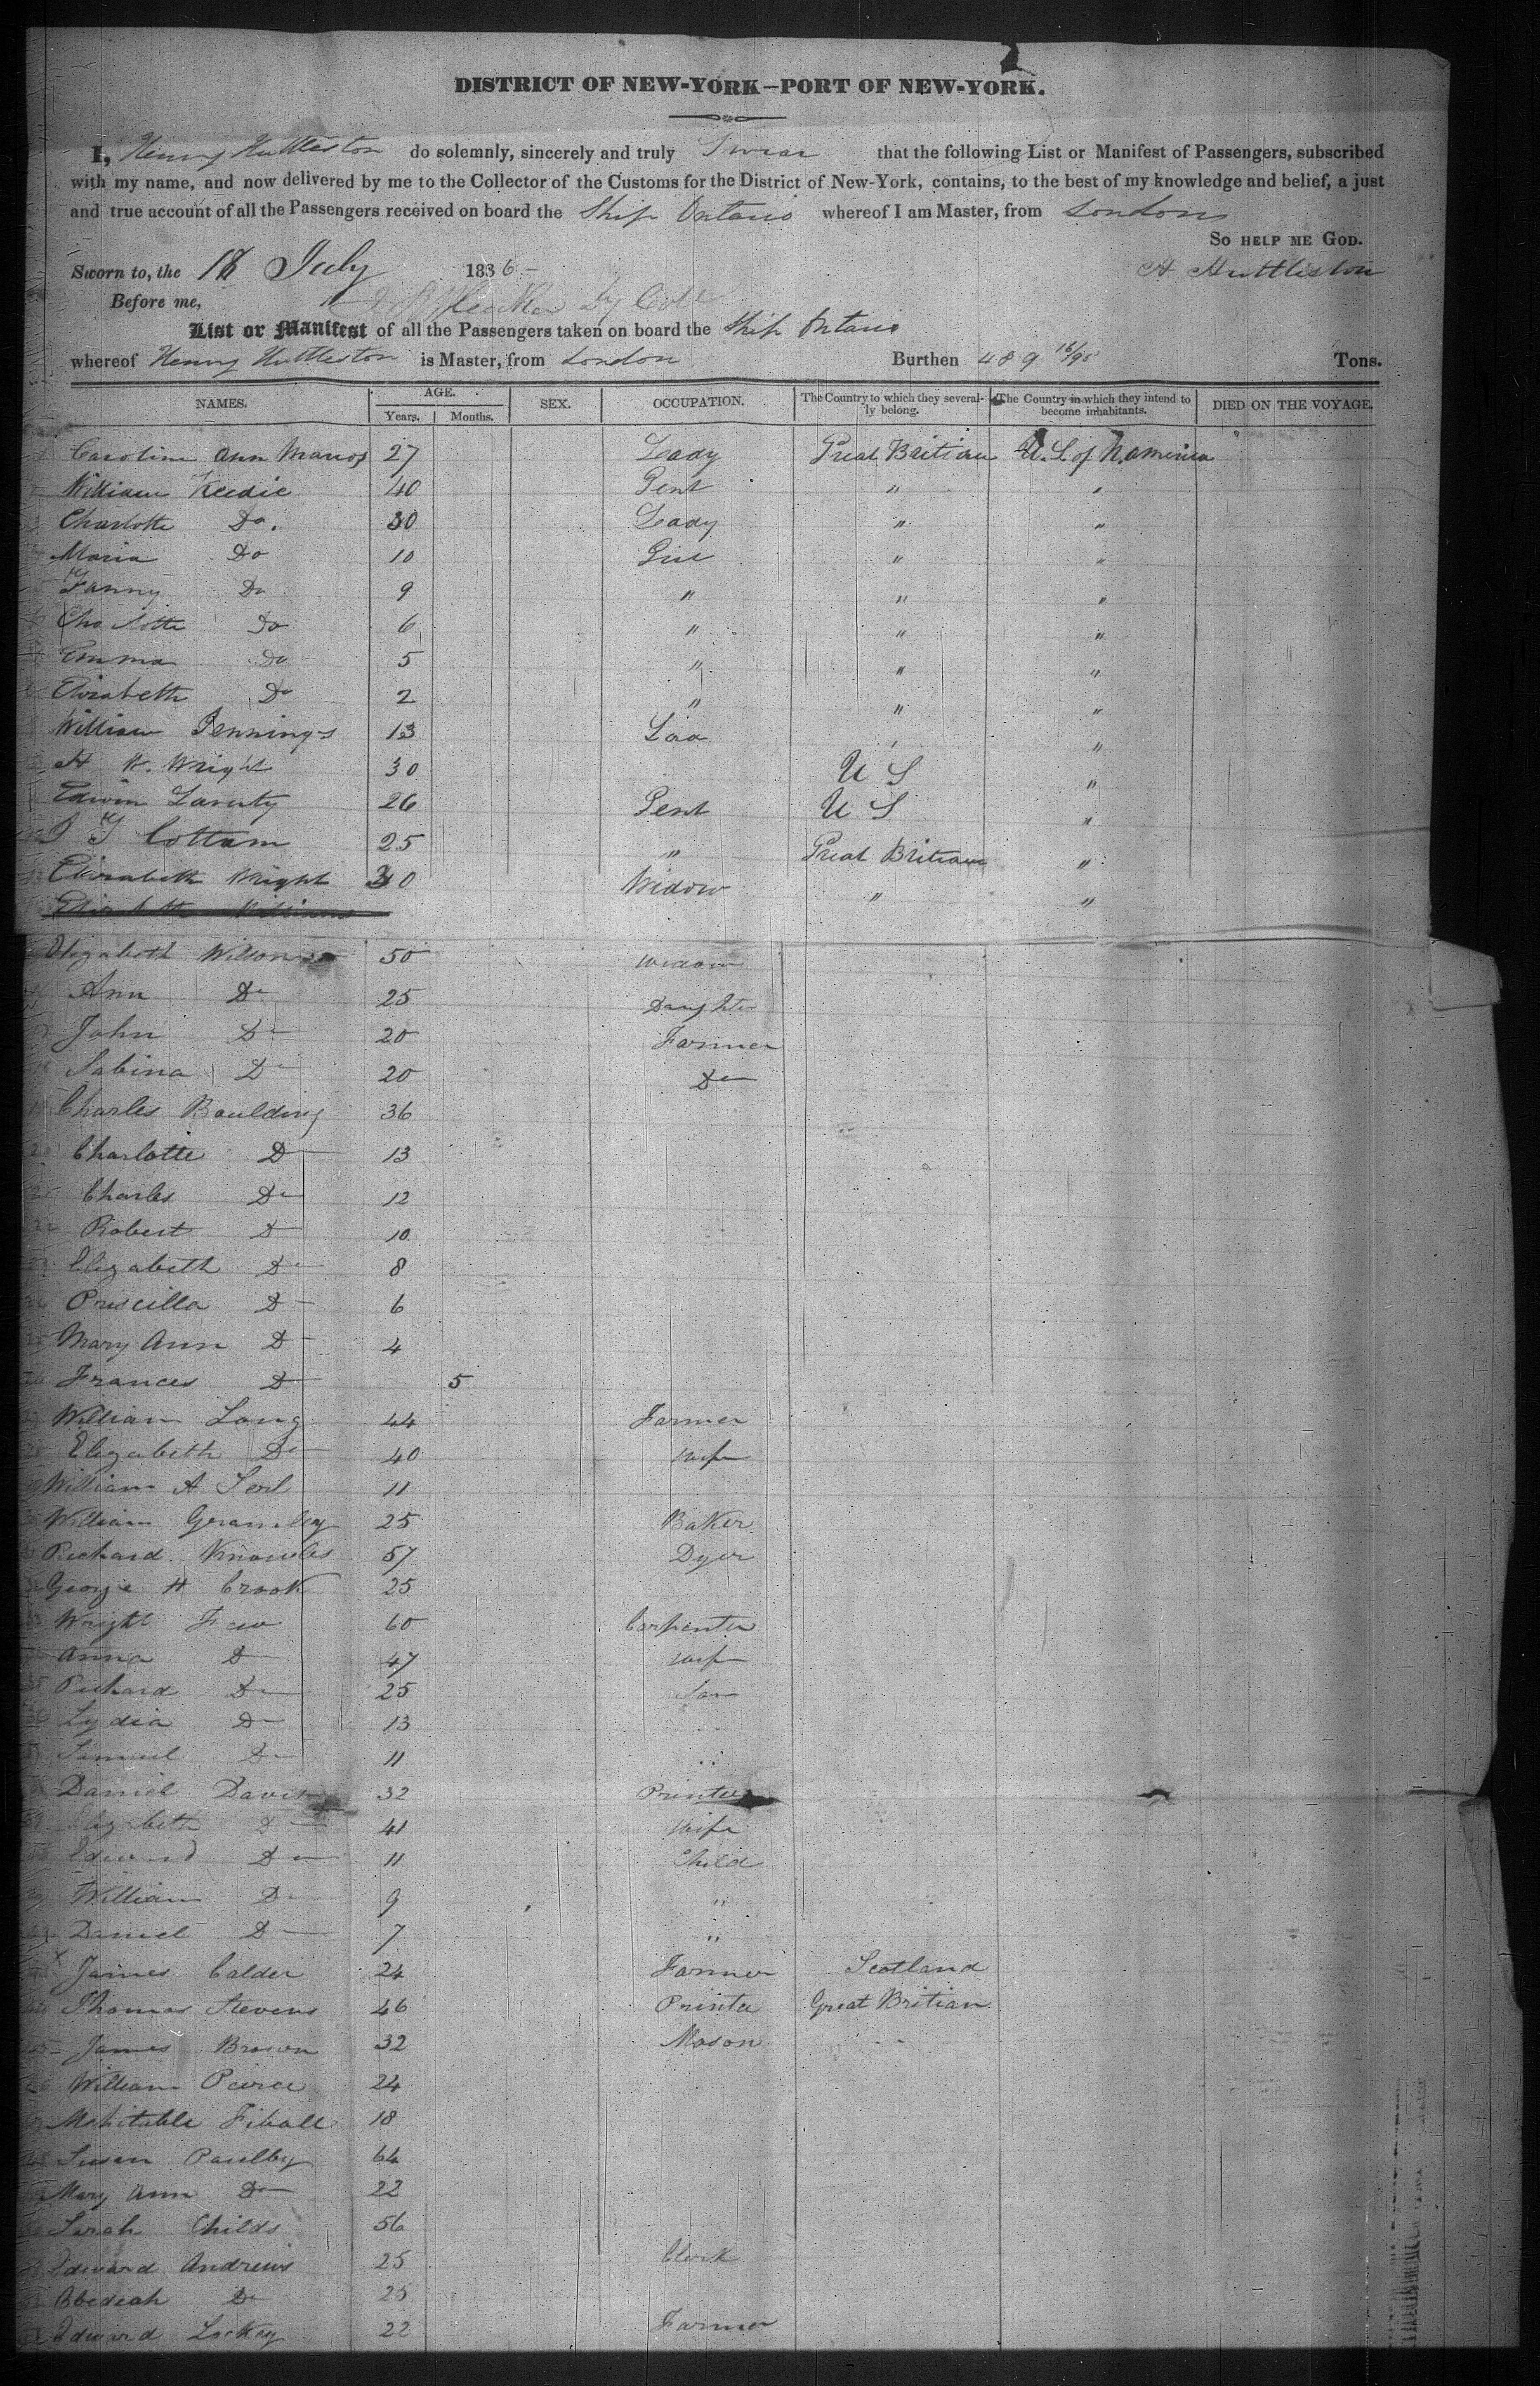 DISTRICT OF NEW-YORK—PORT OF NEW-YORK.
I, Henry Huttleston do solemnly, sincerely and truly Swear that the following List or Manifest of Passengers, subscribed
with my name, and now delivered by me to the Collector of the Customs for the District of New-York, contains, to the best of my knowledge and belief, a just
and true account of all the Passengers received on board the Ship Ontario whereof I am Master, from London
So HELP ME GOD.
Sworn to, the 18 July 1836 - H Huttleston
Before me,
List or Manifest of all the Passengers taken on board the Ship Ontario
whereof Henry Huttleston is Master, from London Burthen 489 16/95 Tons.
NAMES. AGE. Years. Months. SEX. OCCUPATION. The Country to which they severally belong. The Country in which they intend to become inhabitants. DIED ON THE VOYAGE.
Caroline Ann 27 Lady Great Britian U.S. of N. America
William Keedie 40 Gent " "
Charlotte Do. 30 Lady " "
Maria Do 10 Girl " "
Fanny Do 9 " " "
Charlotte Do 6 " " "
Emma Do 5 " " "
Elizabeth Do 2 " " "
William Jennings 13 " "
H W. Wright 30 U S "
Edwin 26 Gent U S "
Cottam 25 " Great Britian "
Elizabeth Wright 30 Widow " "
Elizabeth Willson 50 Widow
Ann Do 25 Daughter
John Do 20 Farmer
Sabina Do 20 Do
Charles Boulding 36
Charlotte D 13
Charles Do 12
Robert D 10
Elizabeth Do 8
Priscilla D 6
Mary Ann D 4
Frances D 5
William Long 44 Farmer
Elizabeth Do 40 Wife
William A 11
William Gramley 25 Baker
Richard Knowles 57 Dyer
George H Crook 25
Wright 60 Carpenter
Anna D 47 Wife
Richard Do 25 Son
Lydia D 13
Samuel Do 11 "
Daniel Davis 32 Printer
Elizabeth D 41 Wife
Edward Do 11 Child
William D 9 "
Daniel D 7 "
James Calder 24 Farmer Scotland
Thomas Stevens 46 Printer Great Britian
James Brown 32 Mason "
William Pierce 24
Mehitable 18
Susan Paulby 64
Mary Ann Do 22
Sarah Childs 56
Edward Andrews 25 Clerk
Do 25
Edward Lockey 22 Farmer